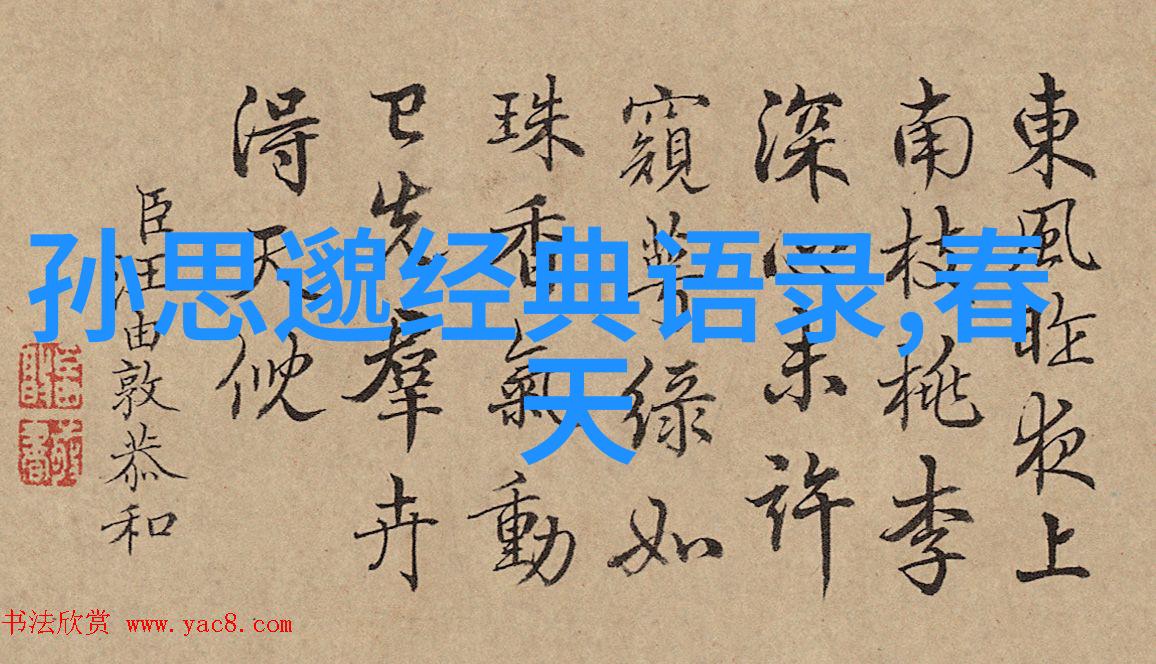 孙思邈经典语录,春
天
東風昨夜上
南枝桃李
深心未許
窺萼綠如
珠香氣動
已先羣卉
得天
臣汪由敦恭和
书法欣赏 www.yac8.com